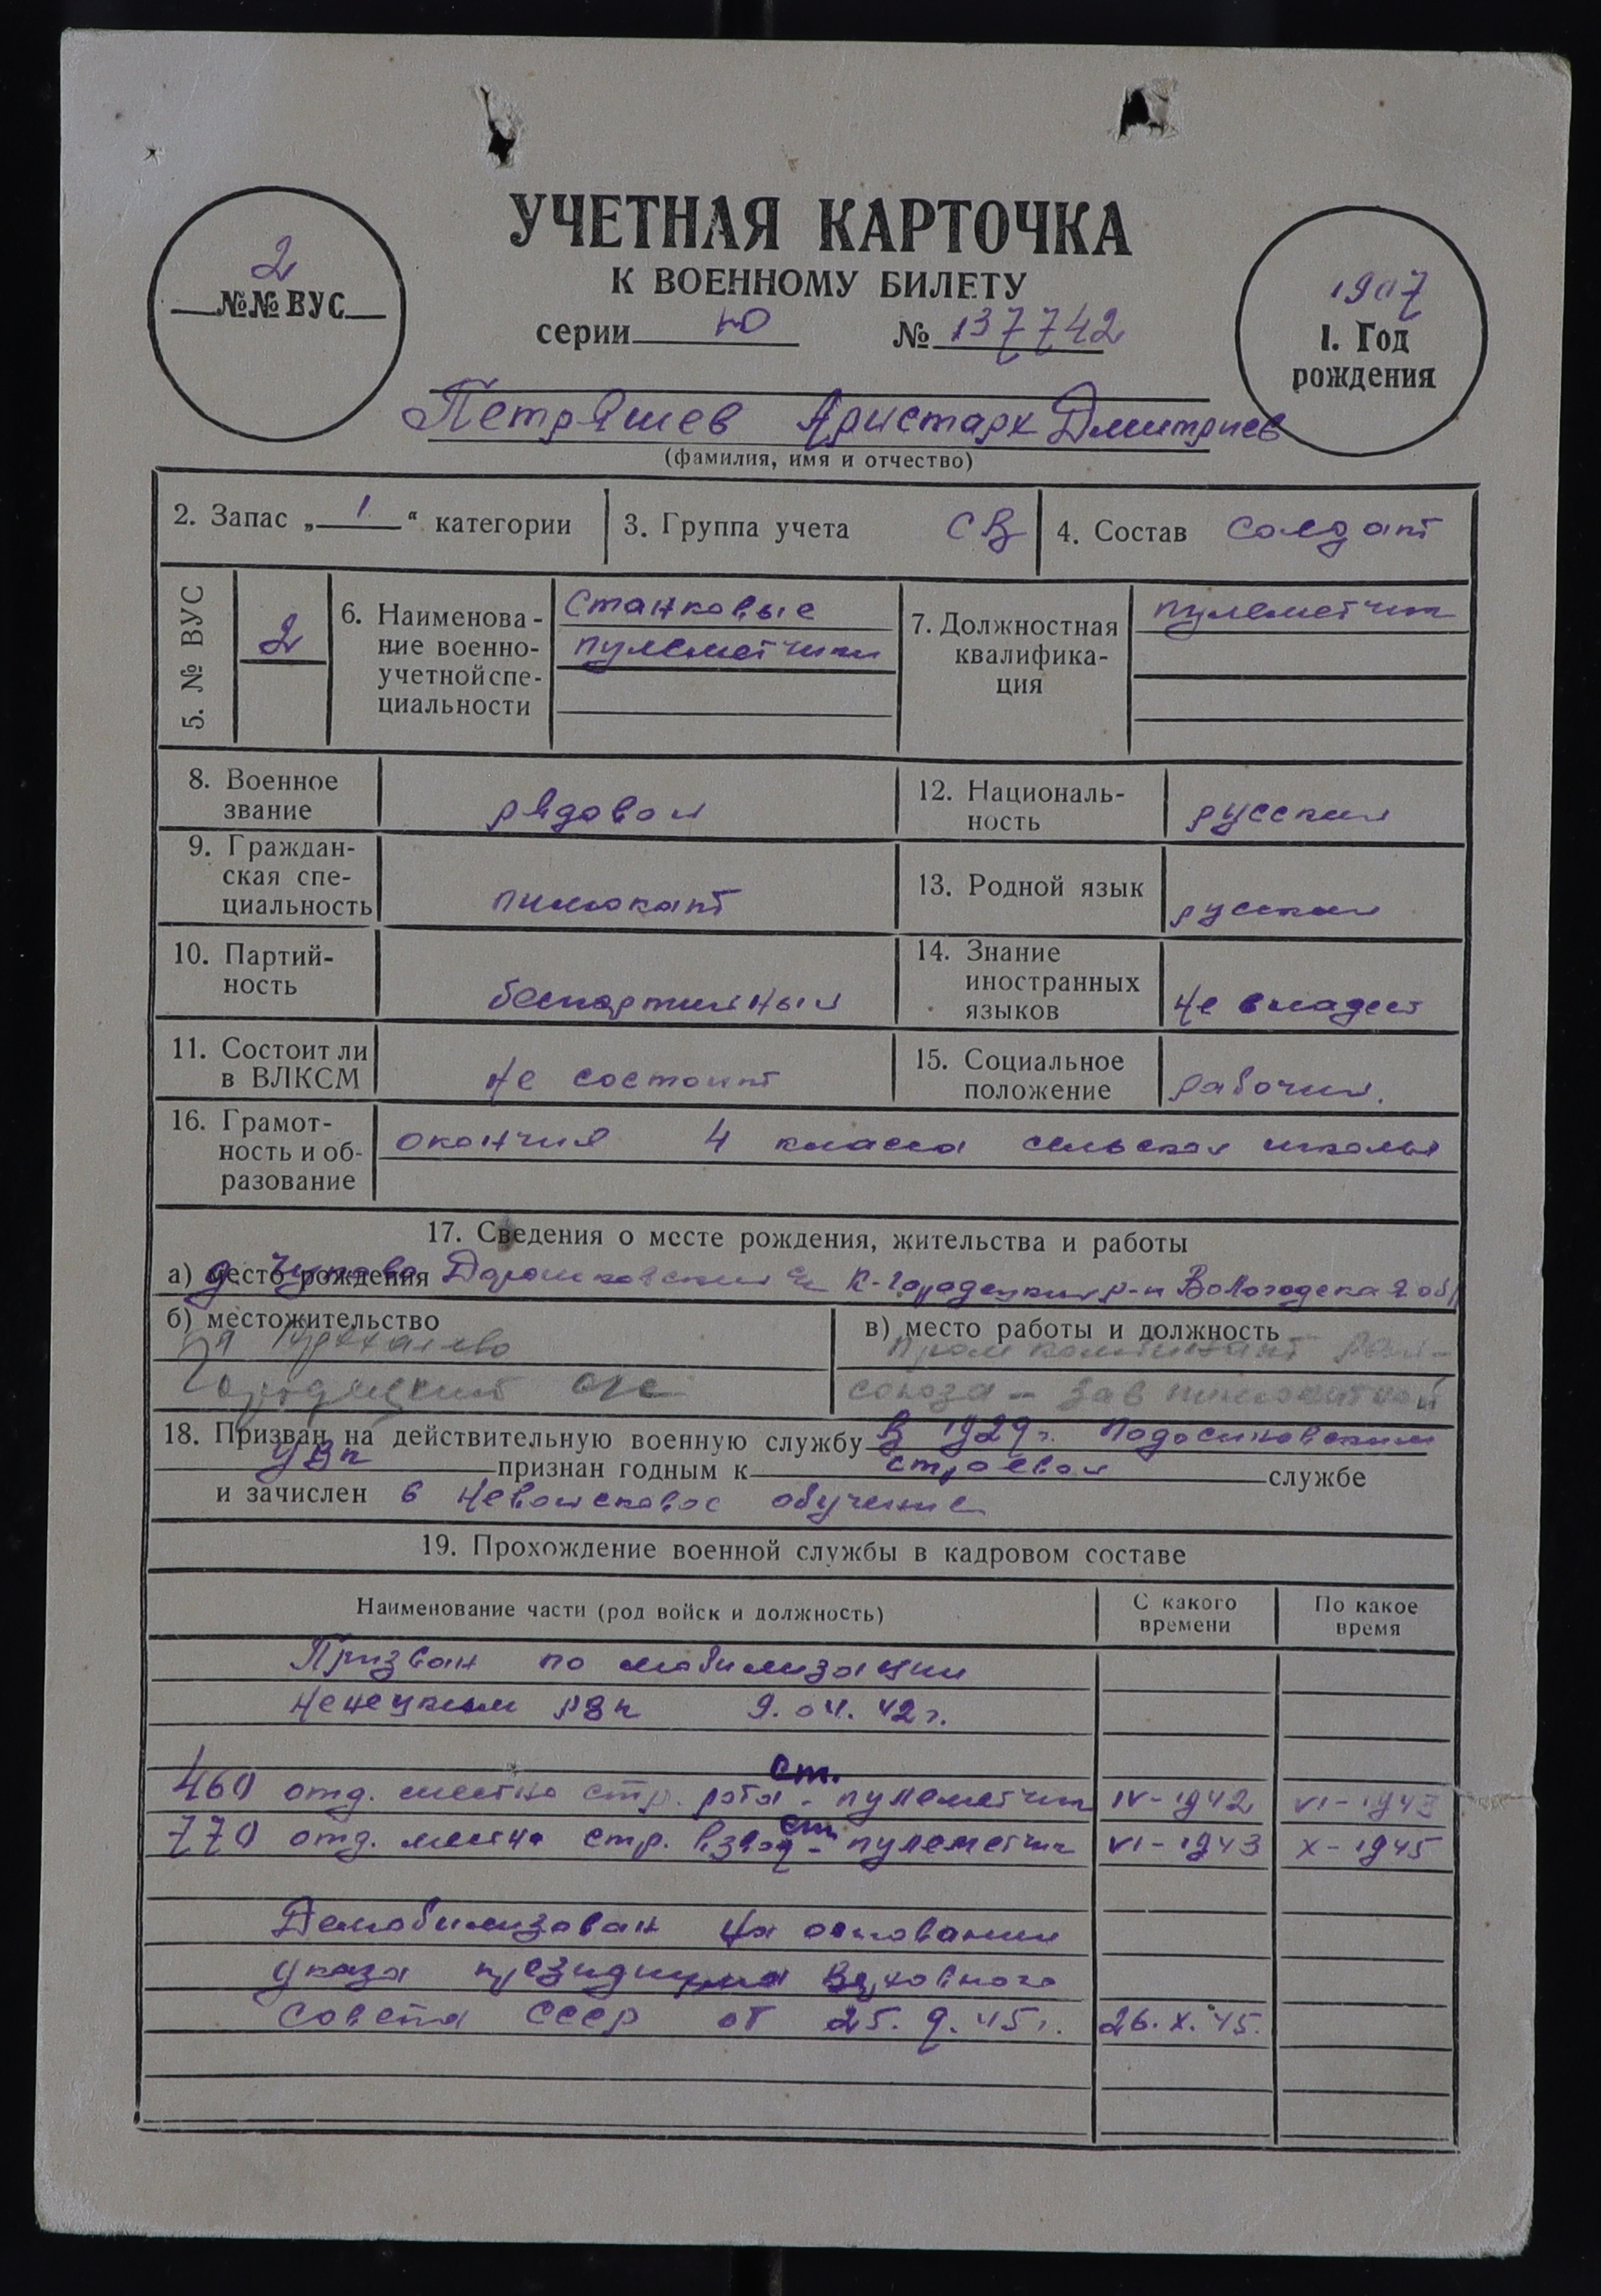 УЧЕТНАЯ КАРТОЧКА
К ВОЕННОМУ БИЛЕТУ
2
№№ ВУС
серии Ю № 137742
1907
1. Год рождения
Петряшев Аристарх Дмитриев
(фамилия, имя и отчество)
2. Запас „1“ категории
3. Группа учета СВ
4. Состав Солдат
5. № ВУС 2
6. Наименование военно-учетной специальности Станковые пулеметчики
7. Должностная квалификация пулеметчик
8. Военное звание рядовой
12. Национальность русский
9. Гражданская специальность пилюкант
13. Родной язык русский
10. Партийность беспартийный
14. Знание иностранных языков не владеет
11. Состоит ли в ВЛКСМ не состоит
15. Социальное положение рабочий.
16. Грамотность и образование окончил 4 класса сельской школы
17. Сведения о месте рождения, жительства и работы
а) место рождения д. К-Городецкий р-н Вологодская обл
б) местожительство
Городецкий с/с
в) место работы и должность
промкомбинат рай-
союза - зав
18. Призван на действительную военную службу В 1929 г. Подосиновским
УВК признан годным к строевой службе
и зачислен в невойсковое обучение
19. Прохождение военной службы в кадровом составе
Наименование части (род войск и должность) С какого времени По какое время
Призван по мобилизации
Ненецким РВК 9.04.42 г.
460 отд. местна стр. рота - ст. пулеметчик IV-1942 VI-1943
770 отд. местн стр. взвод - ст. пулеметчик VI-1943 X-1945
Демобилизован на основании
указа президиума Верховного
Совета СССР от 25.9.45 г. 26.X.45.